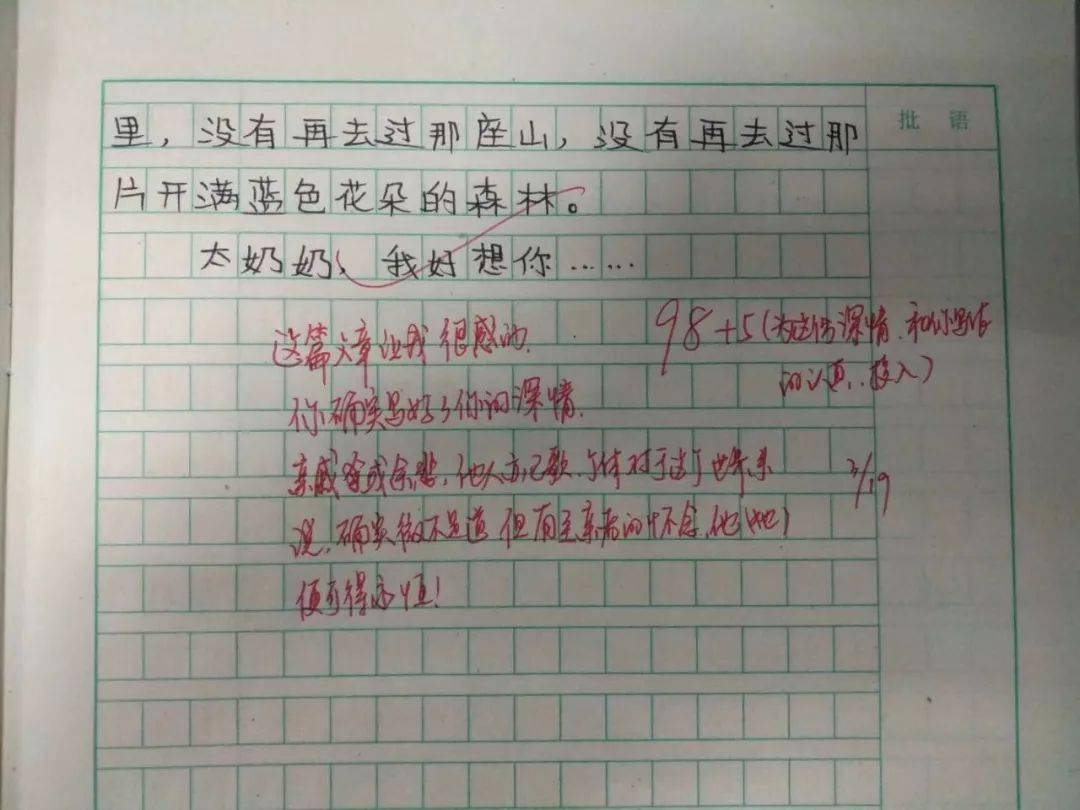 批 语
里，没有再去过那座山，没有再去过那
片开满蓝色花朵的森林。
太奶奶，我好想你……
98+5（为这份深情.和你写作
的认真..投入）
这篇文章让我很感动.
你确实写好了你的深情.
亲戚或余悲，他人亦已歌.个体对于这个世界来
说，确实微不足道 但有至亲者的怀念，他（她）
便可得永恒！